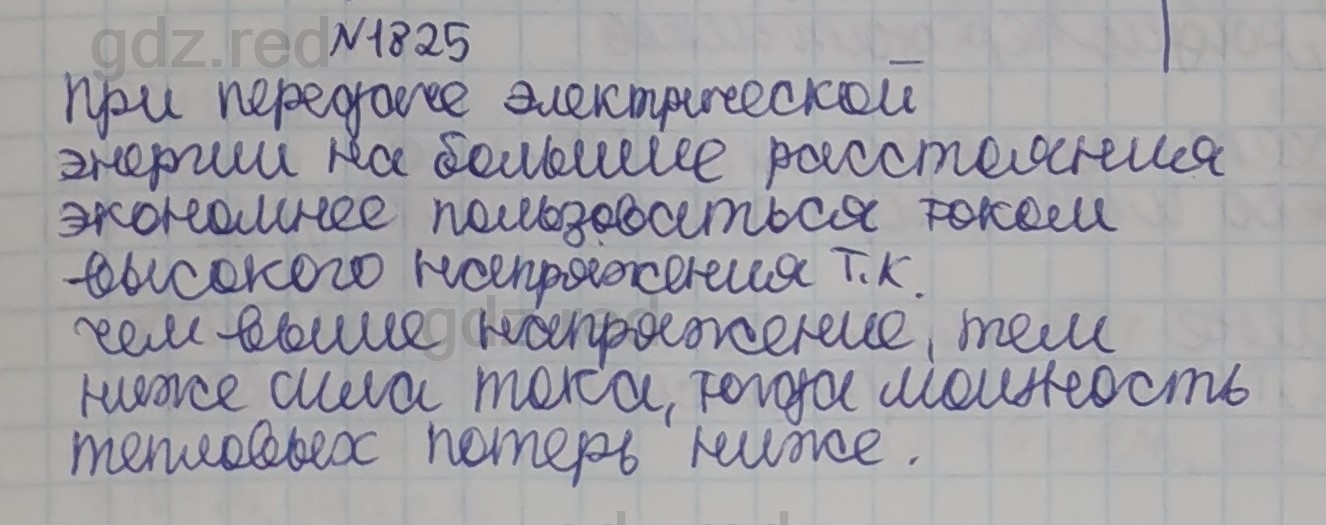 №1825
При передаче электрической
энергии на большие расстояния
экономнее пользоваться током
высокого напряжения т.к.
чем выше напряжение, тем
ниже сила тока, тогда мощность
тепловых потерь ниже.
gdz.red
gdz.red
gdz.red